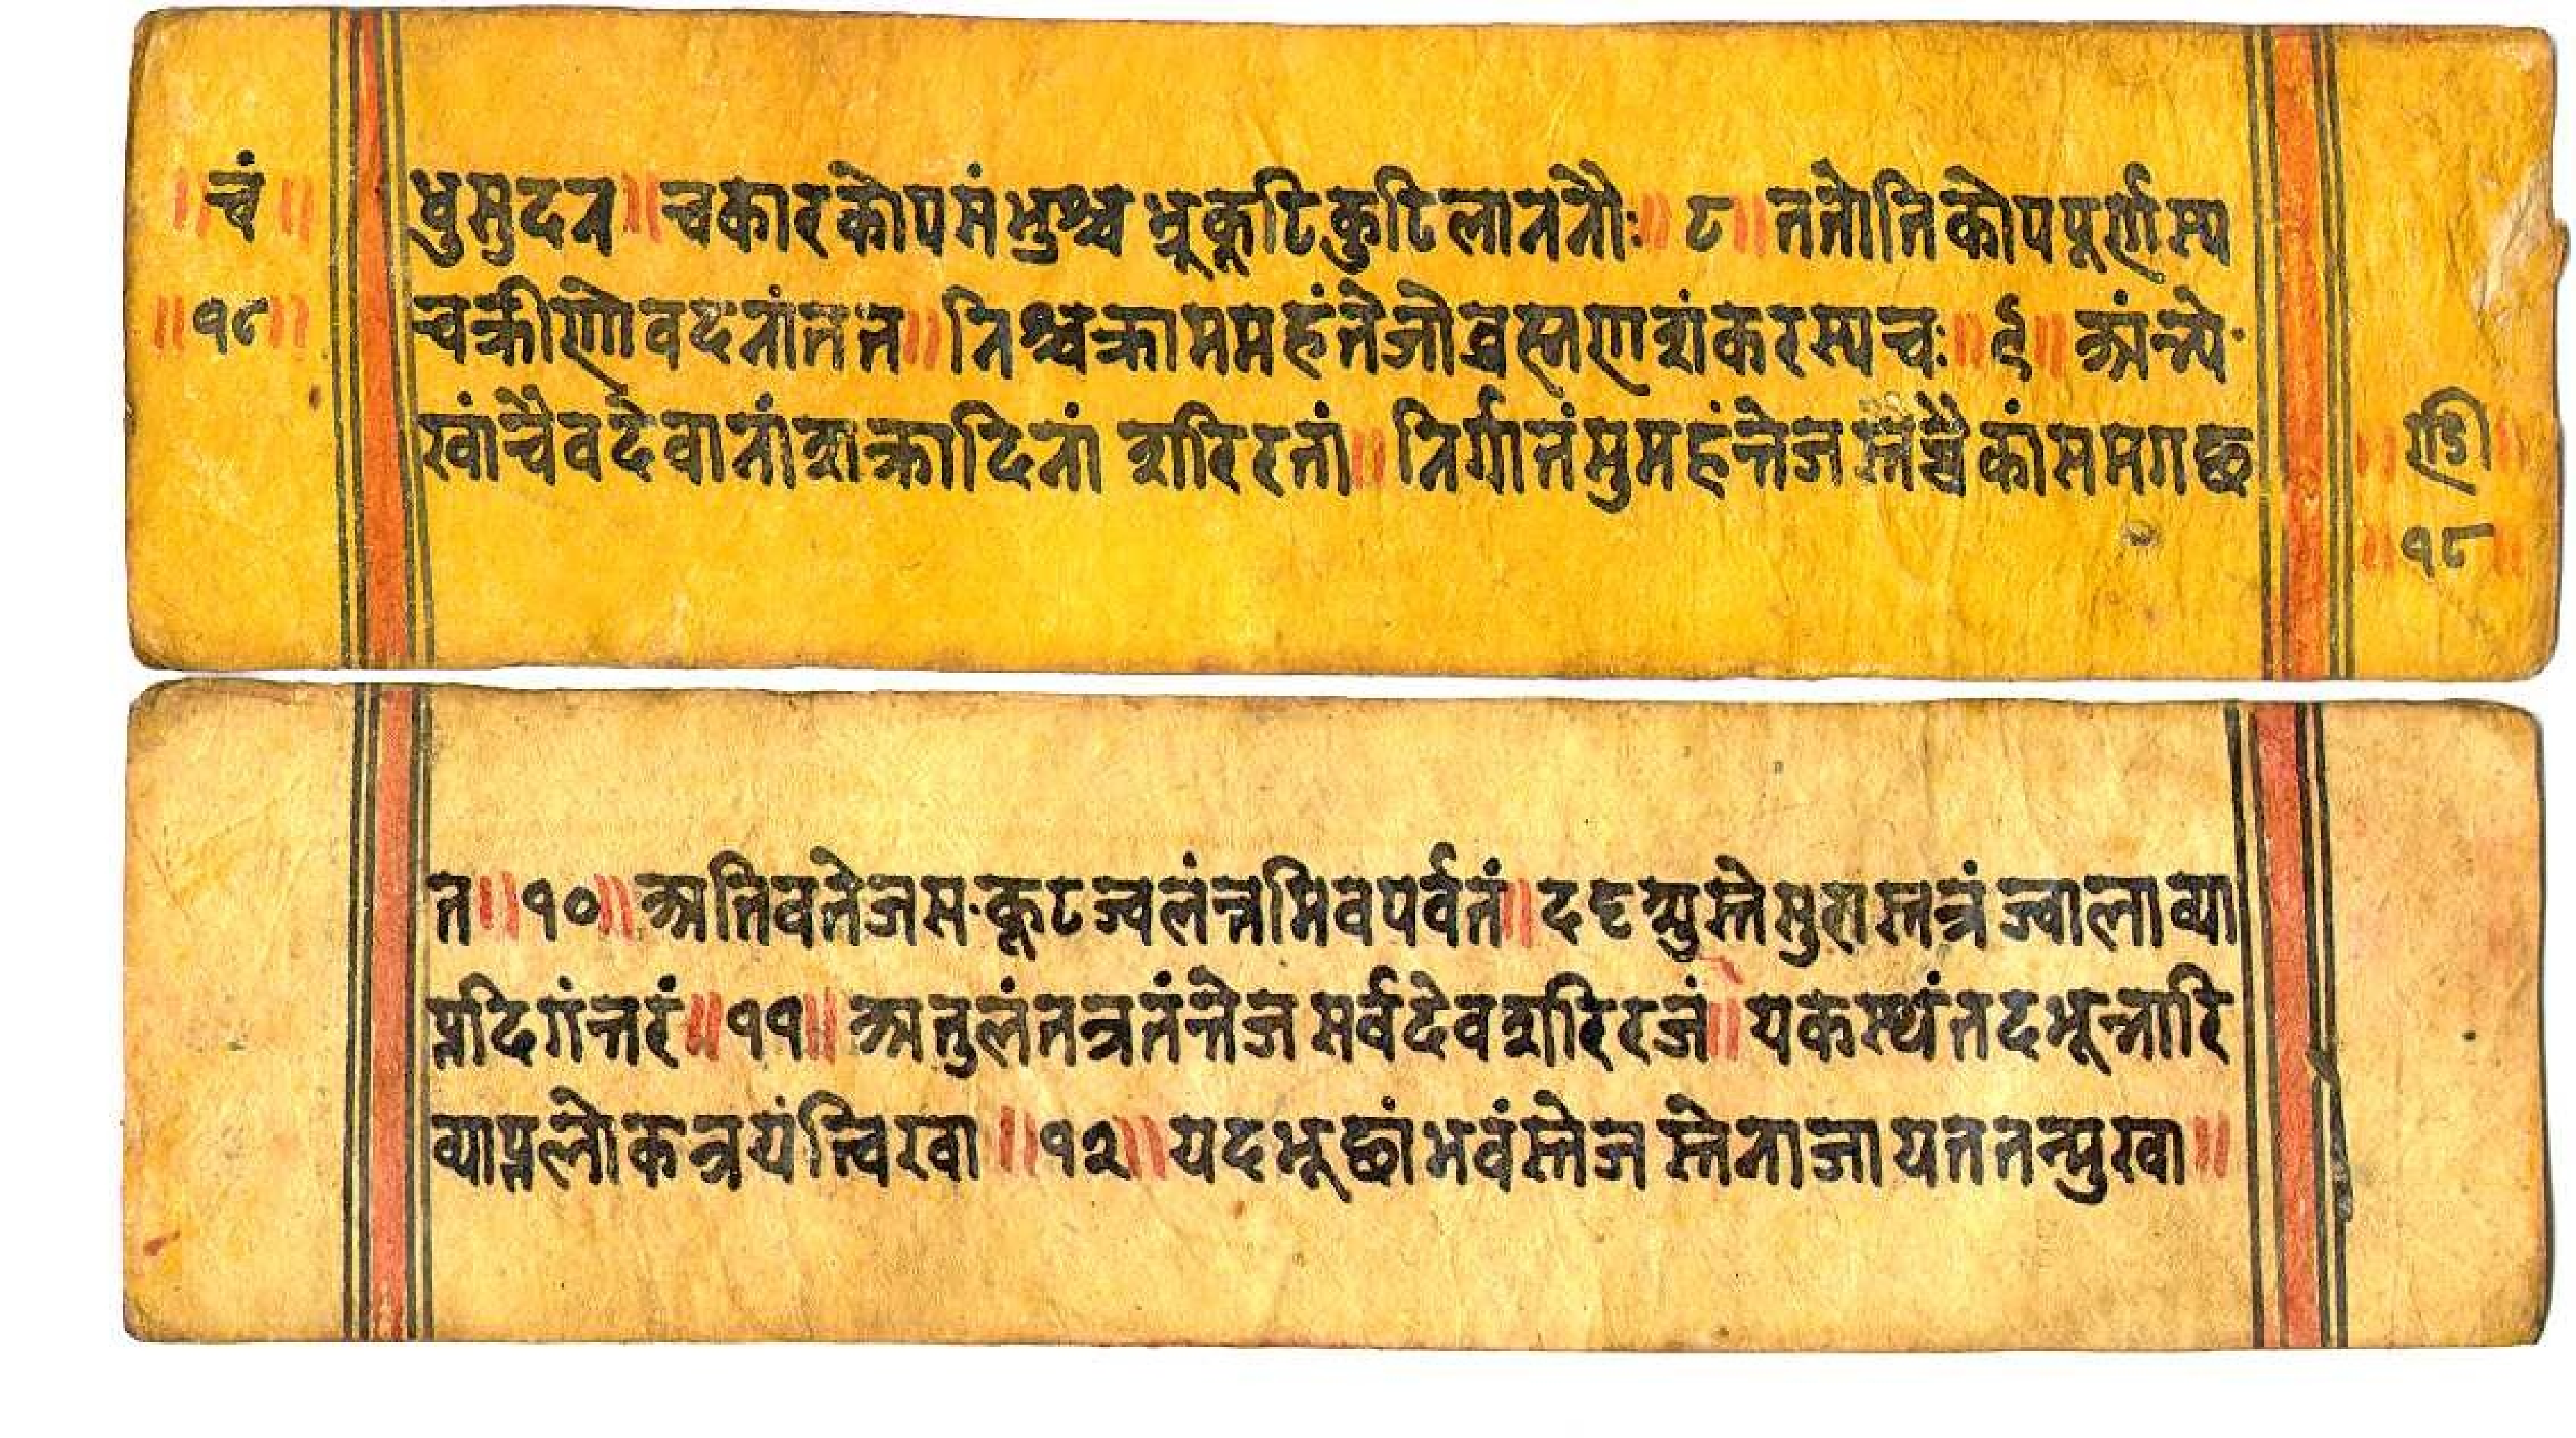 चं
॥१८॥
धुसुदन॥चकारकोपसंभुश्च भ्रूकूटिकुटिलाननौः॥ ८॥ततोतिकोपपूर्णास्य
चक्रीणोवदनांतत॥निश्चक्रामममहंतेजोव्रह्मणशंकरस्यचः॥९॥अंन्ये
खांचैवदेवानांशक्रादिनां शरिरतां॥निर्गातंसुमहंन्तेज स्तच्चैकांसमगछ
१८॥
त॥१०॥अतिवतेजसःकूटज्वलंन्नमिवपर्वतं॥ददृश्युस्तेसुरास्तत्रंज्वालाव्या
प्तदिगंन्तरं॥११॥ अतुलंतत्रतंन्तेज सर्वदेवशरिरजं॥यकस्थंतदभून्नारि
व्याप्तलोकत्रयंत्त्विखा॥१२॥यदभूछांभवंस्तेज स्तेनाजायततन्मुखा॥